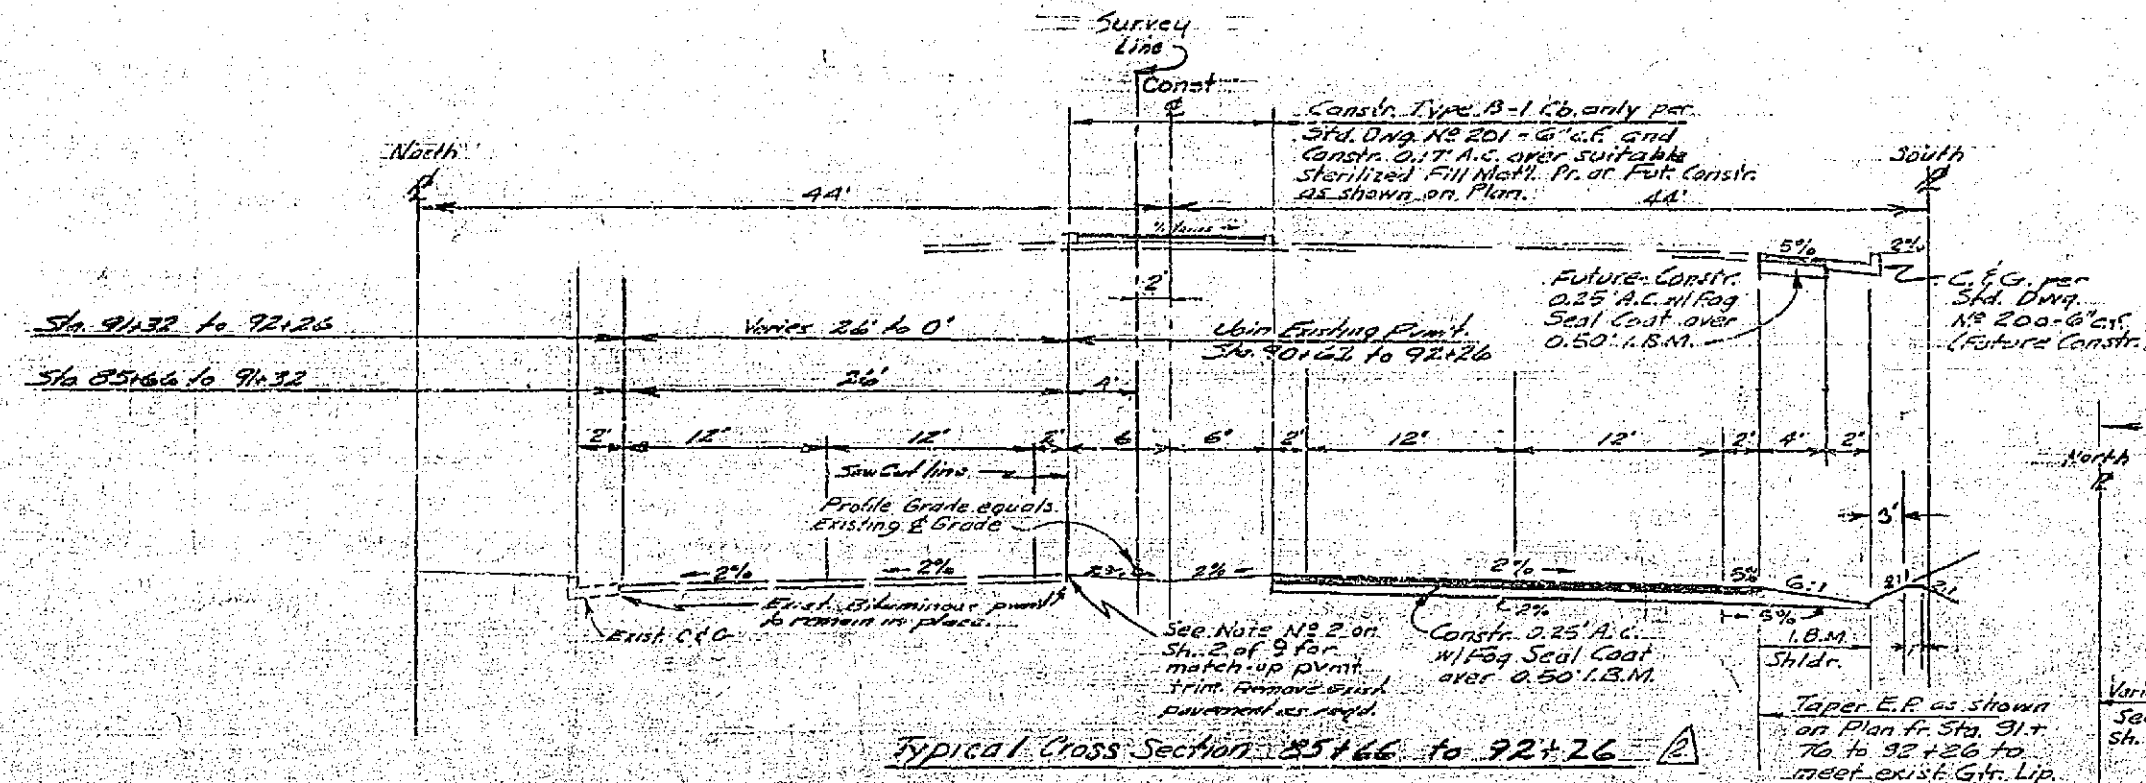 Survey
Line
Const
℄
Constr. Type B-1 Cb. only per
Std. Dwg. Nº 201 - 6" c.f. and
Constr. 0.17' A.C. over suitable
sterilized Fill Mat'l. Pr. or Fut. Constr.
as shown on Plan.
North
South
44'
44'
% Varies
5%
2%
2'
Future Constr.
0.25' A.C. w/ Fog
Seal Coat over
0.50' I.B.M.
C. & G. per
Std. Dwg.
Nº 200-6" c.f.
(Future Constr.
Sta. 91+32 to 92+26
Varies 26' to 0'
Join Existing Pvm't.
Sta. 90+62 to 92+26
Sta 85+66 to 91+32
26'
4'
2' 12' 12' 2' 6 6' 2' 12' 12' 2' 4' 2'
Saw Cut line
North
Profile Grade equals
Existing ℄ Grade
3'
2% 2% 2% 2% 5% 6:1 2:1 2:1
2% 5%
Exist. Bituminous pvmt
to remain in place.
Exist. C & G
See Note Nº 2 on
Sh. 2 of 9 for
match-up pvmt
trim. Remove exist
pavement as reqd.
Constr. 0.25' A.C.
w/ Fog Seal Coat
over 0.50' I.B.M.
I.B.M.
Shldr.
1'
Taper E.P. as shown
on Plan fr. Sta. 91+
76 to 92+26 to
meet exist Gtr. Lip.
Vari
See
Sh.
Typical Cross Section 85+66 to 92+26 2